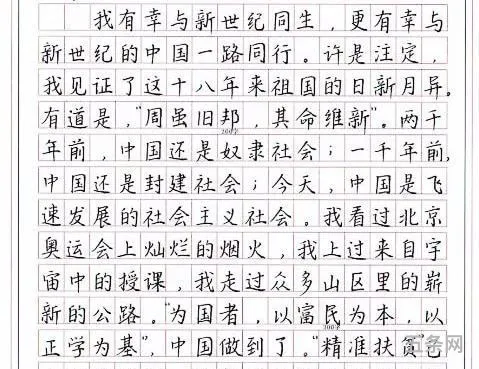 我有幸与新世纪同生，更有幸与
新世纪的中国一路同行。许是注定，
我见证了这十八年来祖国的日新月异。
有道是，“周虽旧邦，其命维新”。两千
200字
年前，中国还是奴隶社会；一千年前，
中国还是封建社会；今天，中国是飞
速发展的社会主义社会。我看过北京
奥运会上灿烂的烟火，我上过来自宇
宙中的授课，我走过众多山区里的崭
新的公路。“为国者，以富民为本，以
300字
正学为基”，中国做到了。“精准扶贫”已
五条网